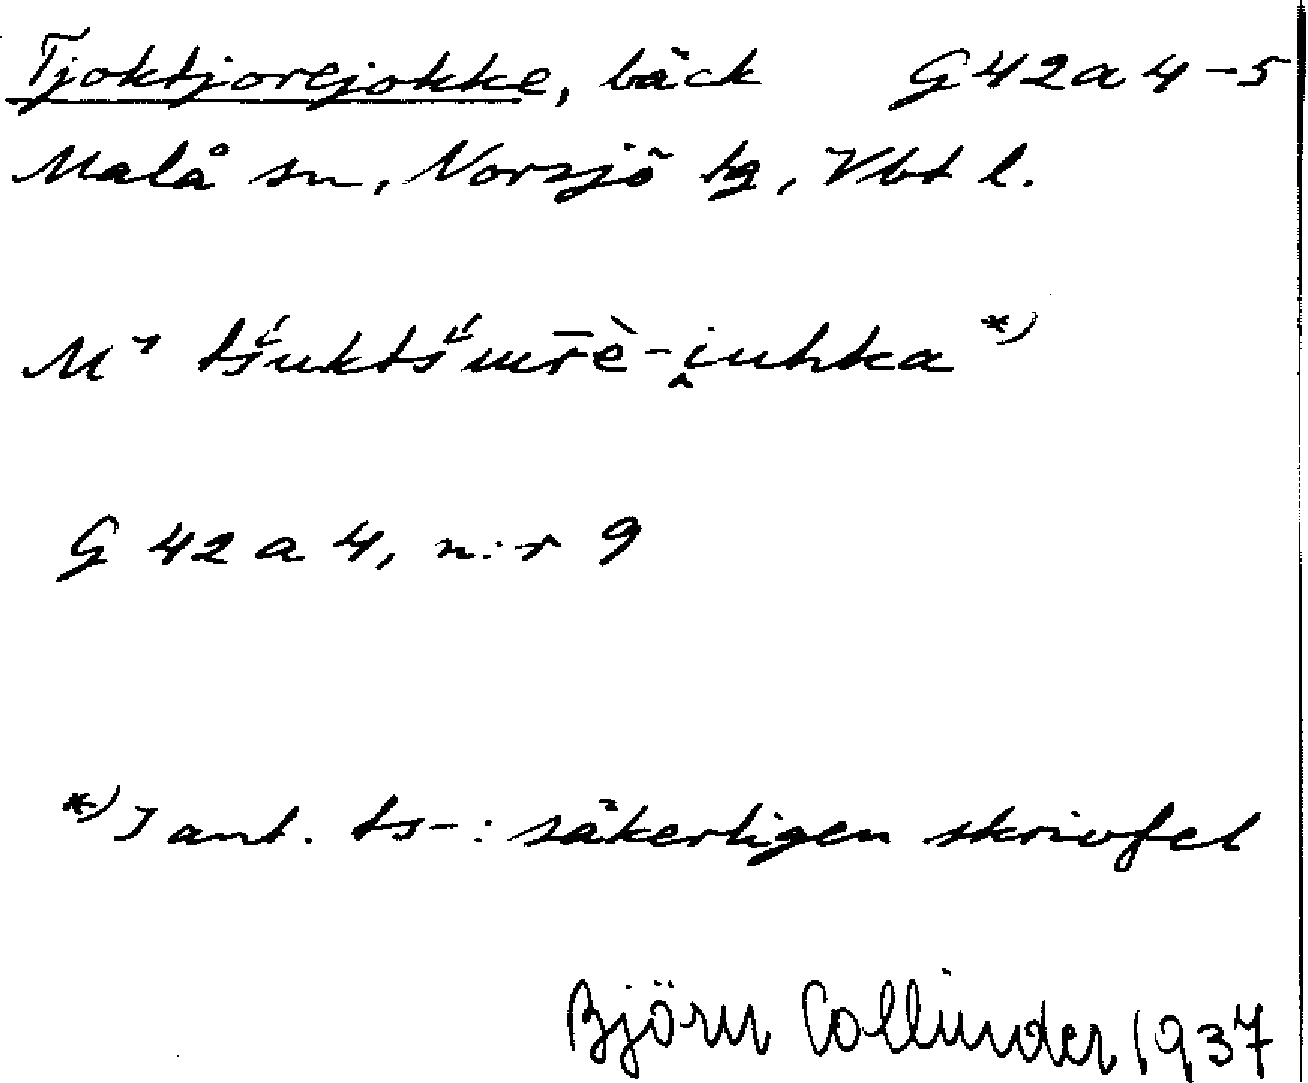 Tjoktjorejokke, bäck G42a4-5
Malå sn, Norsjö tg, Vbt l.
G 42 a 4, n:r 9
*) I ant. ts-: säkerligen skrivfel
Björn Collinder 1937